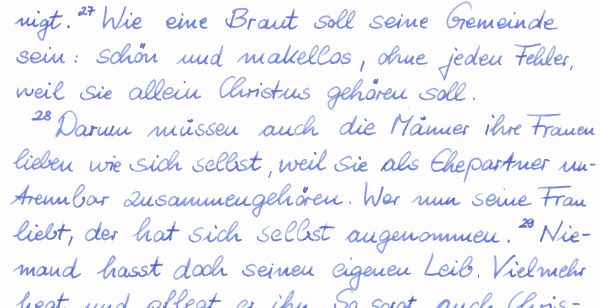 nigt. 27 Wie eine Braut soll seine Gemeinde
sein: schön und makellos, ohne jeden Fehler,
weil sie allein Christus gehören soll.
28 Darum müssen auch die Männer ihre Frauen
lieben wie sich selbst, weil sie als Ehepartner un-
trennbar zusammengehören. Wer nun seine Frau
liebt, der hat sich selbst angenommen. 29 Nie-
mand hasst doch seinen eigenen Leib. Vielmehr
hegt und pflegt er ihn. So sorgt auch Chris-